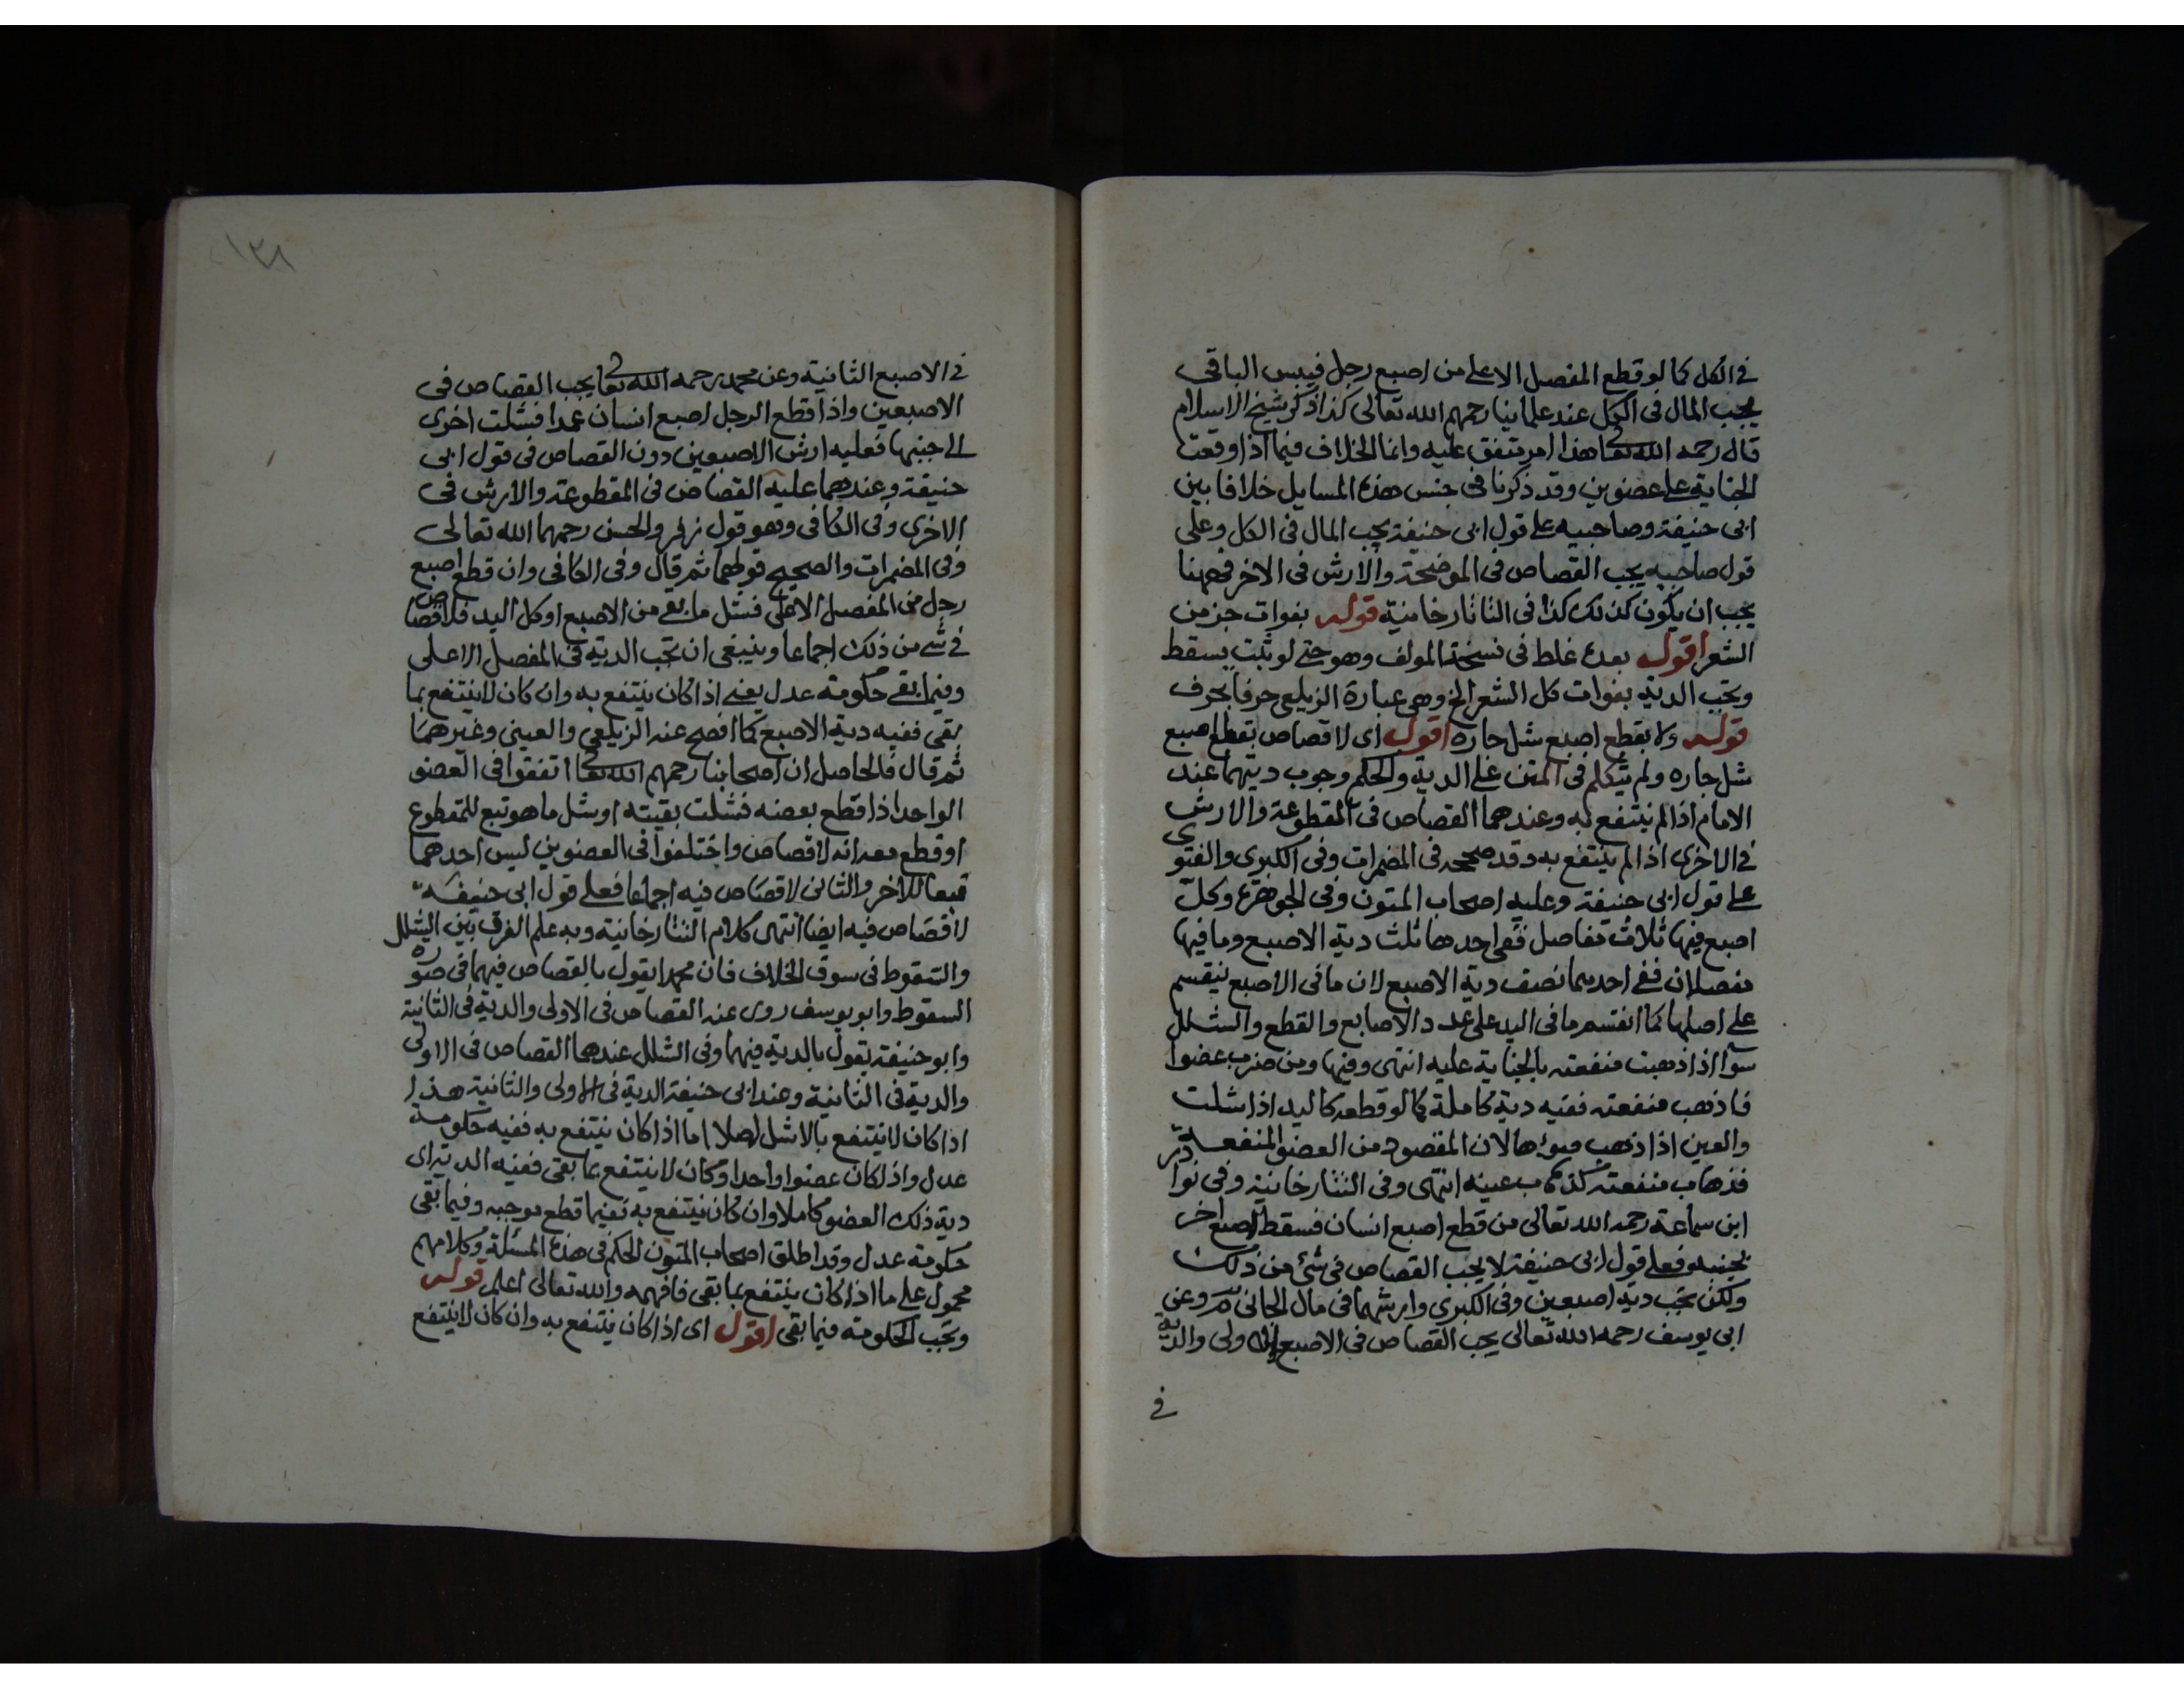 في الكل كما لو قطع المفصل الاعلى من اصبع رجل فيبس الباقي
يجب المال في الكل عند علمائنا رحمهم الله تعالى كذا ذكر شيخ الاسلام
قال رحمه الله تعا هذا امر متفق عليه وانما الخلاف فيما اذا وقعت
الجناية على عضوين وقد ذكرنا في جنس هذه المسايل خلافا بين
ابى حنيفة وصاحبيه على قول ابى حنيفة يجب المال في الكل وعلى
قول صاحبيه يجب القصاص في الموضحة والارش في الاخر فههنا
يجب ان يكون كذلك كذا في التاتارخانية قوله بفوات جز من
الشعر اقول بعده غلط في نسخة المولف وهو حتى لو نبت يسقط
وتجب الدية بفوات كل الشعر الخ وهى عبارة الزيلعى حرفا بحرف
قوله ولا بقطع اصبع شل جاره اقول اى لا قصاص بقطع اصبع
شل جاره ولم يتكلم في المتن على الدية والحكم وجوب ديتهما عند
الامام اذا لم ينتفع به وعندهما القصاص في المقطوعة والارش
في الاخرى اذا لم ينتفع به وقد صححه في المضمرات وفي الكبرى والفتوى
على قول ابى حنيفة وعليه اصحاب المتون وفي الجوهرة وكل
اصبع فيها ثلاث مفاصل ففى احدها ثلث دية الاصبع وما فيها
مفصلان ففى احديهما نصف دية الاصبع لان ما في الاصبع ينقسم
على اصلها كما انقسم ما في اليد على عدد الاصابع والقطع والشلل
سوآ اذا ذهبت منفعته بالجناية عليه انتهى وفيها ومن ضرب عضوا
فاذهب منفعته ففيه دية كاملة كما لو قطعه كاليد اذا شلت
والعين اذا ذهب ضوءها لان المقصود من العضو المنفعة
فذهاب منفعته كذهاب عينه انتهى وفي التتارخانية وفي نوادر
ابن سماعة رحمه الله تعالى من قطع اصبع انسان فسقط اصبع اخر
بجنبه فعلى قول ابى حنيفة لا يجب القصاص في شئ من ذلك
ولكن تجب دية اصبعين وفي الكبرى وارشهما في مال الجانى وعن
ابى يوسف رحمه الله تعالى يجب القصاص في الاصبع الاولى والدية
في
١٣٨
في الاصبع الثانية وعن محمد رحمه الله تعا يجب القصاص في
الاصبعين واذا قطع الرجل اصبع انسان عمدا فشلت اخرى
الى جنبها فعليه ارش الاصبعين دون القصاص في قول ابى
حنيفة وعندهما عليه القصاص في المقطوعة والارش في
الاخرى وفي الكافى وهو قول زفر والحسن رحمهما الله تعالى
وفي المضمرات والصحيح قولهما ثم قال وفي الكافى وان قطع اصبع
رجل من المفصل الاعلى فشل ما بقى من الاصبع او كل اليد فلا قصاص
في شى من ذلك اجماعا وينبغى ان تجب الدية في المفصل الاعلى
وفيما بقى حكومة عدل يعنى اذا كان ينتفع به وان كان لا ينتفع بما
بقى ففيه دية الاصبع كما افصح عنه الزيلعى والعينى وغيرهما
ثم قال فالحاصل ان اصحابنا رحمهم الله تعا اتفقوا في العضو
الواحد اذا قطع بعضه فشلت بقيته او شل ما هو تبع للمقطوع
او قطع معه انه لا قصاص واختلفوا في العضوين ليس احدهما
تبعا للاخر والثانى لا قصاص فيه اجماعا فعلى قول ابى حنيفة
لا قصاص فيه ايضا انتهى كلام التتارخانية وبه علم الفرق بين الشلل
والسقوط في سوق الخلاف فان محمدا يقول بالقصاص فيهما في صورة
السقوط وابو يوسف روى عنه القصاص في الاولى والدية في الثانية
وابو حنيفة يقول بالدية فيهما وفي الشلل عندهما القصاص في الاولى
والدية في الثانية وعند ابى حنيفة الدية في الاولى والثانية هذا
اذا كان لا ينتفع بالاشل اصلا اما اذا كان ينتفع به ففيه حكومة
عدل واذا كان عضوا واحدا وكان لا ينتفع بما بقى ففيه الدية اى
دية ذلك العضو كاملا وان كان ينتفع به ففيما قطع موجبه وفيما بقى
حكومة عدل وقد اطلق اصحاب المتون الحكم في هذه المسئلة وكلامهم
محمول على ما اذا كان ينتفع بما بقى فافهمه والله تعالى اعلم قوله
وتجب الحكومة فيما بقى اقول اى اذا كان ينتفع به وان كان لا ينتفع